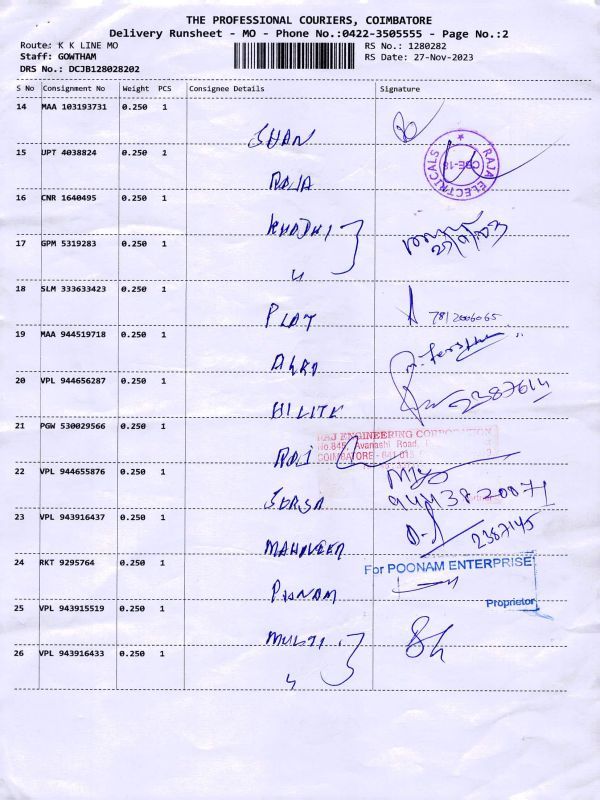 THE PROFESSIONAL COURIERS, COIMBATORE
Delivery Runsheet - MO - Phone No.:0422-3505555 - Page No.:2
Route: K K LINE MO RS No.: 1280282
Staff: GOWTHAM RS Date: 27-Nov-2023
DRS No.: DCJB128028202
S No Consignment No Weight PCS Consignee Details Signature
14 MAA 103193731 0.250 1
SHAN
15 UPT 4038824 0.250 1
RAJA ELECTRICALS
CBE-18
RAJA
16 CNR 1640495 0.250 1
KHADHI
17 GPM 5319283 0.250 1
18 SLM 333633423 0.250 1
PLAT
19 MAA 944519718 0.250 1
AKRA
20 VPL 944656287 0.250 1
2387614
HILITE
21 PGW 530029566 0.250 1
RAJ ENGINEERING CORPORATION
No.845, Avanashi Road,
COIMBATORE - 641 018.
RAJ
22 VPL 944655876 0.250 1
SERSA
23 VPL 943916437 0.250 1
2387145
MAHAVEER
24 RKT 9295764 0.250 1
For POONAM ENTERPRISE
Proprietor
POONAM
25 VPL 943915519 0.250 1
MULTI
26 VPL 943916433 0.250 1